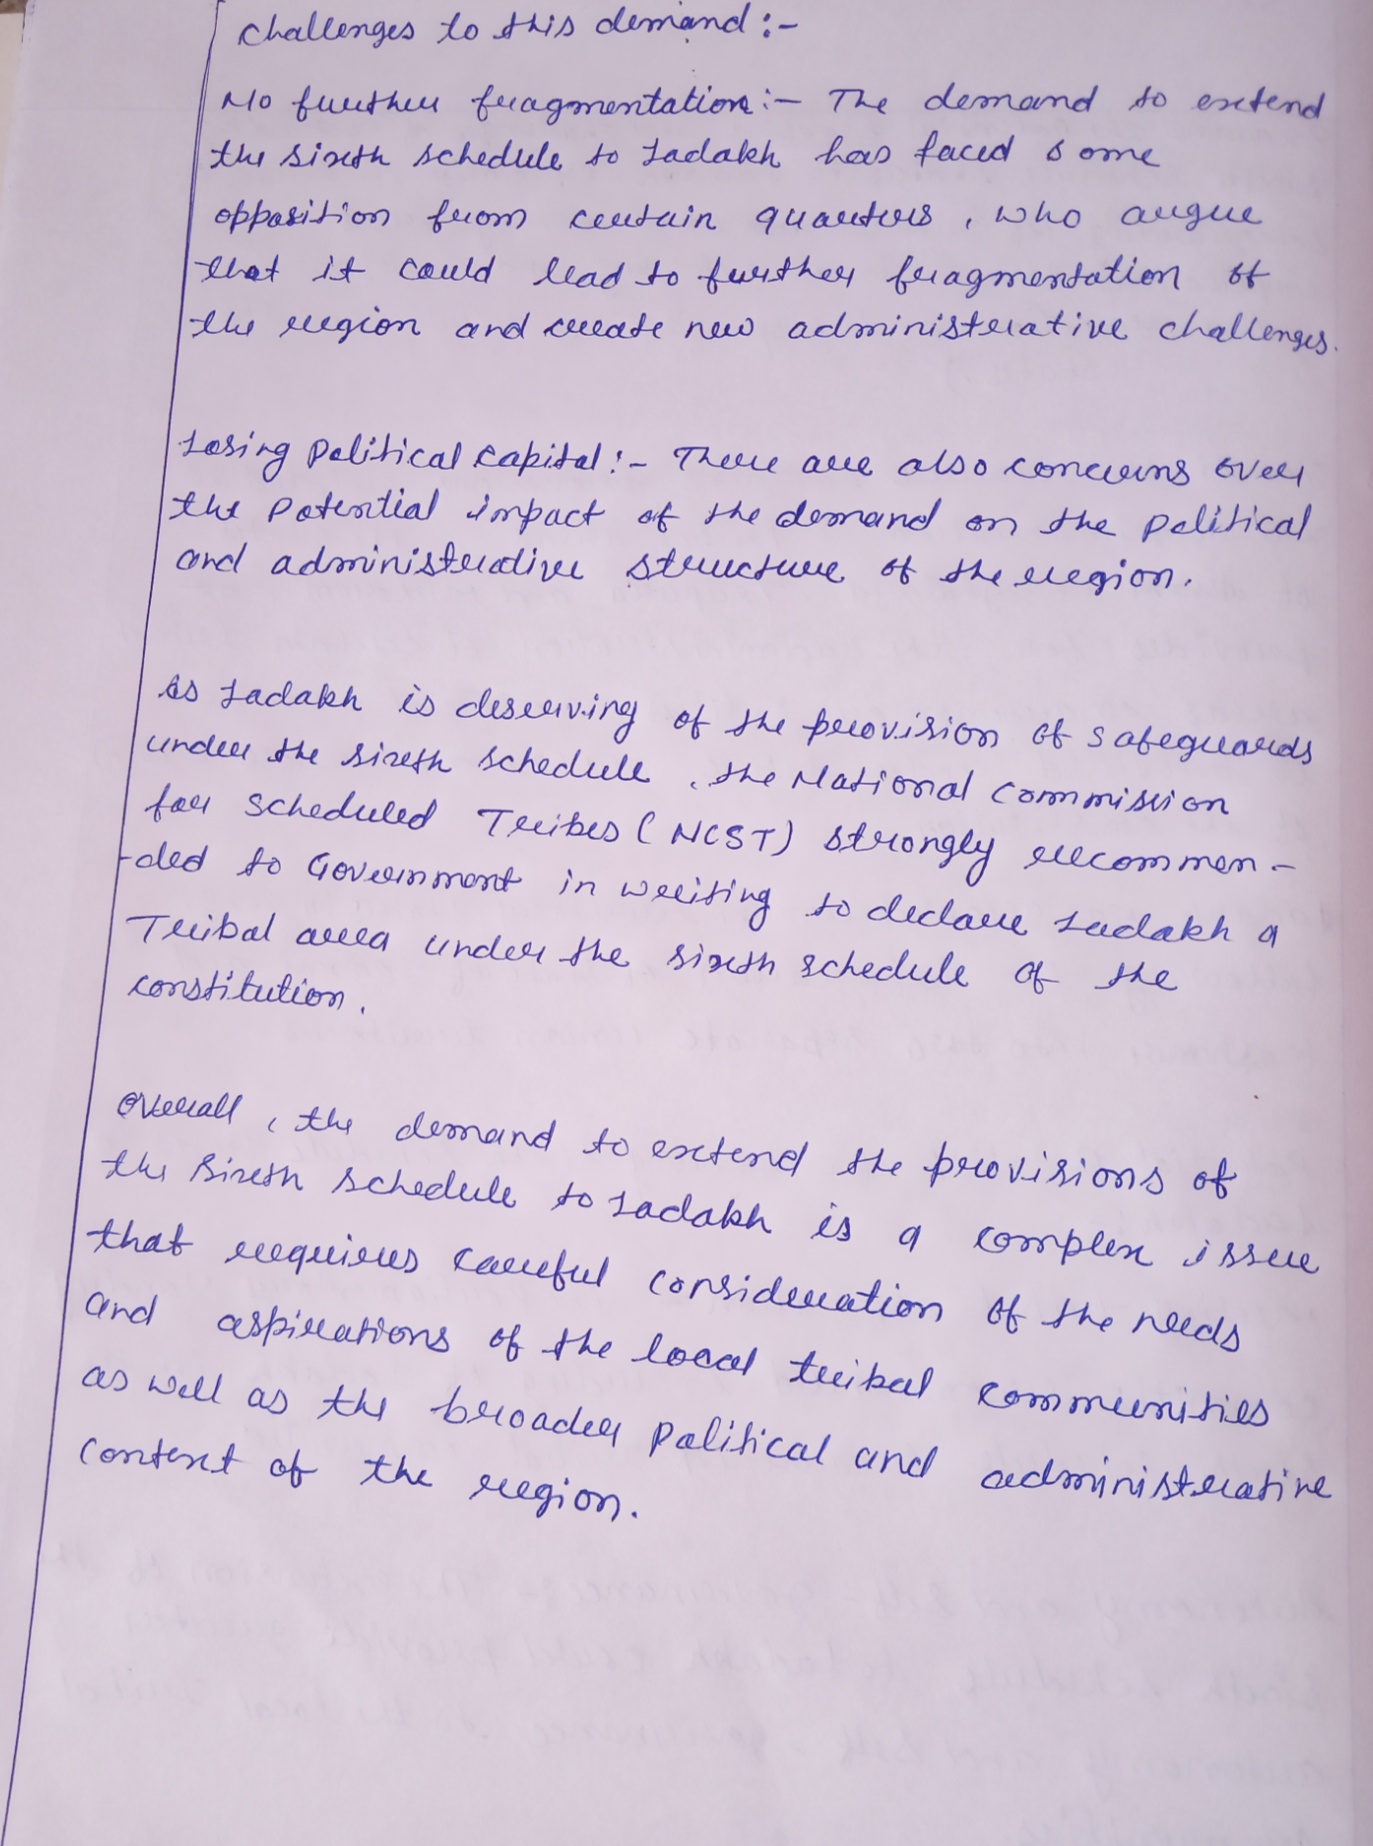 Challenges to this demand :-
No further fragmentation :- The demand to extend
the sixth schedule to Ladakh has faced some
opposition from certain quarters, who argue
that it could lead to further fragmentation of
the region and create new administrative challenges.
Losing Political Capital :- There are also concerns over
the potential impact of the demand on the political
and administrative structure of the region.
As Ladakh is deserving of the provision of safeguards
under the sixth schedule, the National Commission
for Scheduled Tribes (NCST) strongly recommen-
-ded to Government in writing to declare Ladakh a
Tribal area under the sixth schedule of the
constitution.
Overall, the demand to extend the provisions of
the Sixth Schedule to Ladakh is a complex issue
that requires careful consideration of the needs
and aspirations of the local tribal communities
as well as the broader political and administrative
context of the region.